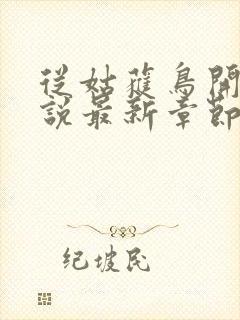 從姑蓷鳥開
說最新章節
纪坡民